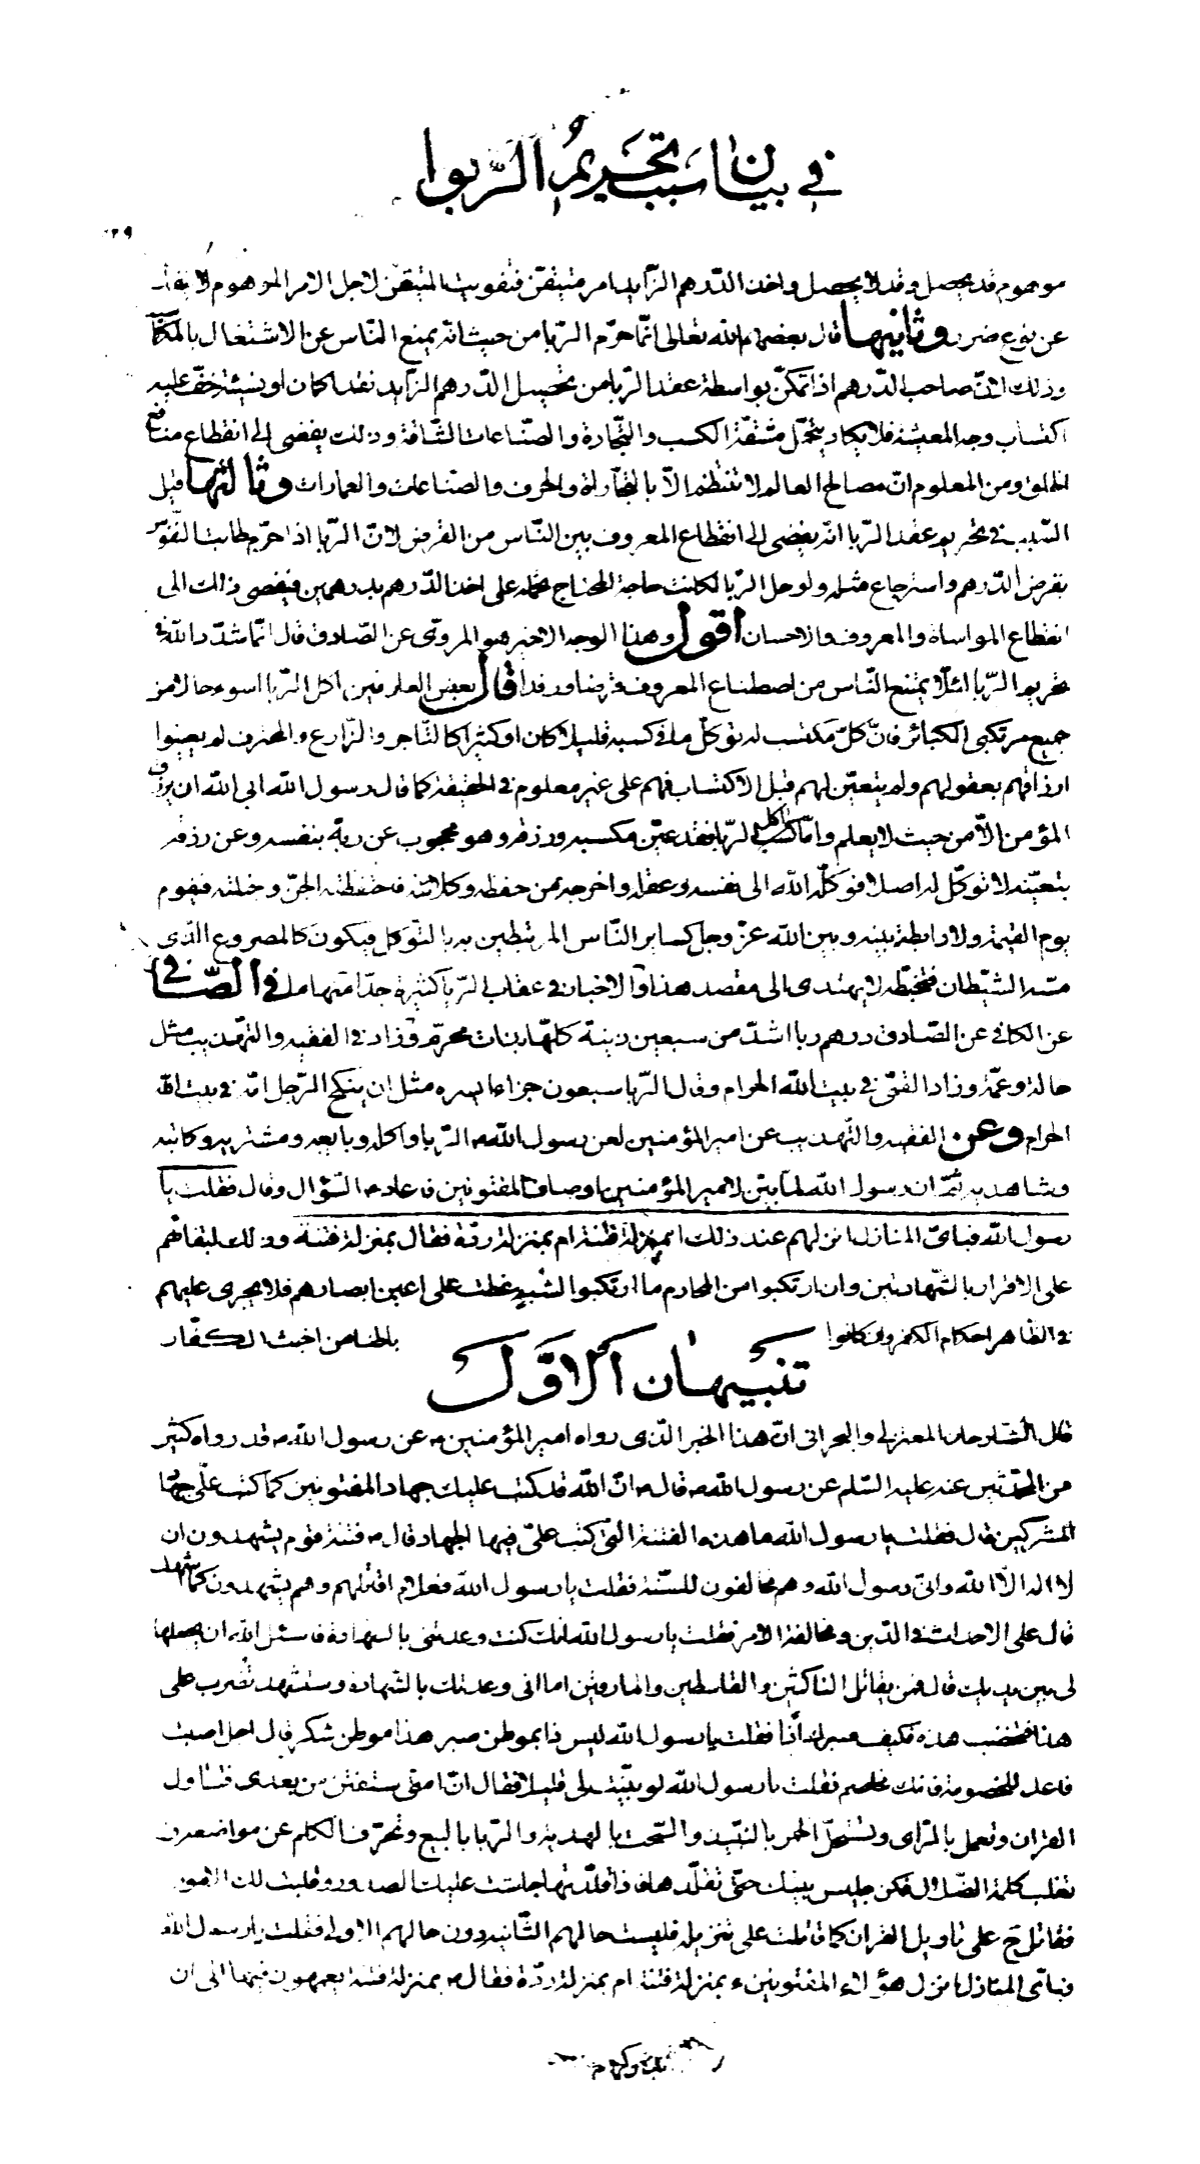 في بيان سبب تحريم الربوا
موهوم قد يحصل وقد لا يحصل واخذ الدّرهم الزّايد امر متيقّن فتفويت المتيقّن لاجل الامر الموهوم لا ينفكّ
عن نوع ضرر وثانيها قال بعضهم الله تعالى انّما حرّم الرّبا من حيث انّه يمنع النّاس عن الاشتغال بالمكاسب
وذلك لانّ صاحب الدّرهم اذا تمكّن بواسطة عقد الرّبا من تحصيل الدّرهم الزّايد نقدا كان او نسيئة خفّ عليه
اكتساب وجه المعيشة فلا يكاد يتحمّل مشقّة الكسب والتّجارة والصّناعات الشّاقة وذلك يفضى الى انقطاع منافع
الخلق ومن المعلوم انّ مصالح العالم لا تنتظم الاّ بالتّجارة والحرف والصّناعات والعمارات وثالثها قيل
السّبب في تحريم عقد الرّبا انّه يفضى الى انقطاع المعروف بين النّاس من القرض لانّ الرّبا اذا حرّم طابت النّفوس
بقرض الدّرهم واسترجاع مثله ولو حل الرّبا لكانت حاجة المحتاج تحمله على اخذ الدّرهم بدرهمين فيفضى ذلك الى
انقطاع المواساة والمعروف والاحسان اقول وهذا الوجه الاخير هو المروىّ عن الصّادق قال انّما شدّد الله في
تحريم الرّبا لئلّا يمتنع النّاس من اصطناع المعروف قرضا ورفدا قال بعض العارفين آكل الرّبا اسوء حالا من
جميع مرتكبى الكبائر فانّ كلّ مكتسب له توكّل ما في كسبه قليلا كان او كثيرا كالتّاجر والزّارع والمحترف لم يعينوا
ارزاقهم بعقولهم ولم يتعيّن لهم قبل الاكتساب فهم على غير معلوم في الحقيقة كما قال رسول الله ابى الله ان يرزق
المؤمن الاّ من حيث لا يعلم وامّا آكل الرّبا فقد عيّن مكسبه ورزقه وهو محجوب عن ربّه بنفسه وعن رزقه
بتعيّنه لا توكّل له اصلا فوكّله الله الى نفسه وعقله واخرجه من حفظه وكلائته فاختطفته الجنّ وخبلته فيقوم
يوم القيمة ولا رابطة بينه وبين الله عزّ وجل كساير النّاس المرتبطين به بالتّوكل فيكون كالمصروع الّذى
مسّه الشّيطان فتخبّطه لا يهتدى الى مقصد هذا والاخبار في عقاب الرّبا كثيرة جدّا منها ما في الصّافي
عن الكافي عن الصّادق درهم ربا اشدّ من سبعين زينة كلّها بذات محرم وزاد في الفقيه والتّهذيب مثل
خالة وعمّة وزاد القمّى في بيت الله الحرام وقال الرّبا سبعون جزاء ايسره مثل ان ينكح الرّجل امّه في بيت الله
الحرام وعن الفقيه والتّهذيب عن امير المؤمنين لعن رسول الله الرّبا وآكله وبايعه ومشتريه وكاتبه
وشاهديه ثمّ ان رسول الله لما بيّن لامير المؤمنين اوصاف المفتونين فاعاد السّؤال وقال فقلت يا
رسول الله فباىّ المنازل انزلهم عند ذلك ابمنزلة فتنة ام بمنزلة ردّة فقال بمنزلة فتنة وذلك لبقائهم
على الاقرار بالشّهادتين وان ارتكبوا من المحارم ما ارتكبوا لشبه غطت على اعين ابصارهم فلا يجرى عليهم
في الظّاهر احكام الكفر وان كانوا باطنا من اخبث الكفّار
تنبيهان الاوّل
قال الشارحان المعتزلى والبحرانى انّ هذا الخبر الّذى رواه امير المؤمنين عن رسول الله قد رواه كثير
من المحدّثين عنه عليه السّلم عن رسول الله قال انّ الله قد كتب عليك جهاد المفتونين كما كتب علىّ جهاد
المشركين قال فقلت يا رسول الله ما هذه الفتنة الّتى كتب علىّ فيها الجهاد قال فتنة قوم يشهدون ان
لا اله الاّ الله وانّى رسول الله وهم مخالفون للسّنة فقلت يا رسول الله فعلام اقاتلهم وهم يشهدون كما اشهد
قال على الاحداث في الدّين ومخالفة الامر فقلت يا رسول الله انّك كنت وعدتنى بالشهادة فاسئل الله ان يعجلها
لى بين يديك قال فمن يقاتل النّاكثين والقاسطين والمارقين اما انى وعدتك بالشهادة وستشهد تضرب على
هذا فتخضب هذه فكيف صبرك اذاً فقلت يا رسول الله ليس ذا بموطن صبر هذا موطن شكر قال اجل اصبت
فاعد للخصومة فانّك مخاصم فقلت يا رسول الله لو بيّنت لى قليلا فقال انّ امتى ستفتن من بعدى فتتاول
القران وتعمل بالرّاى وتستحلّ الخمر بالنّبيذ والسّحت بالهدية والرّبا بالبيع وتحرّف الكلم عن مواضعه
تغلب كلمة الضّلال فكن جليس بيتك حتّى تقلّدها فاذا قلّدتها جاشت عليك الصدور وقلبت لك الامور
فقاتل ح على تاويل القران كما قاتلت على تنزيله فليست حالهم الثّانية دون حالهم الاولى فقلت يا رسول الله
فباىّ المنازل انزل هؤلاء المفتونين بمنزلة فتنة ام بمنزلة ردّة فقال بمنزلة فتنة يعمهون فيها الى ان